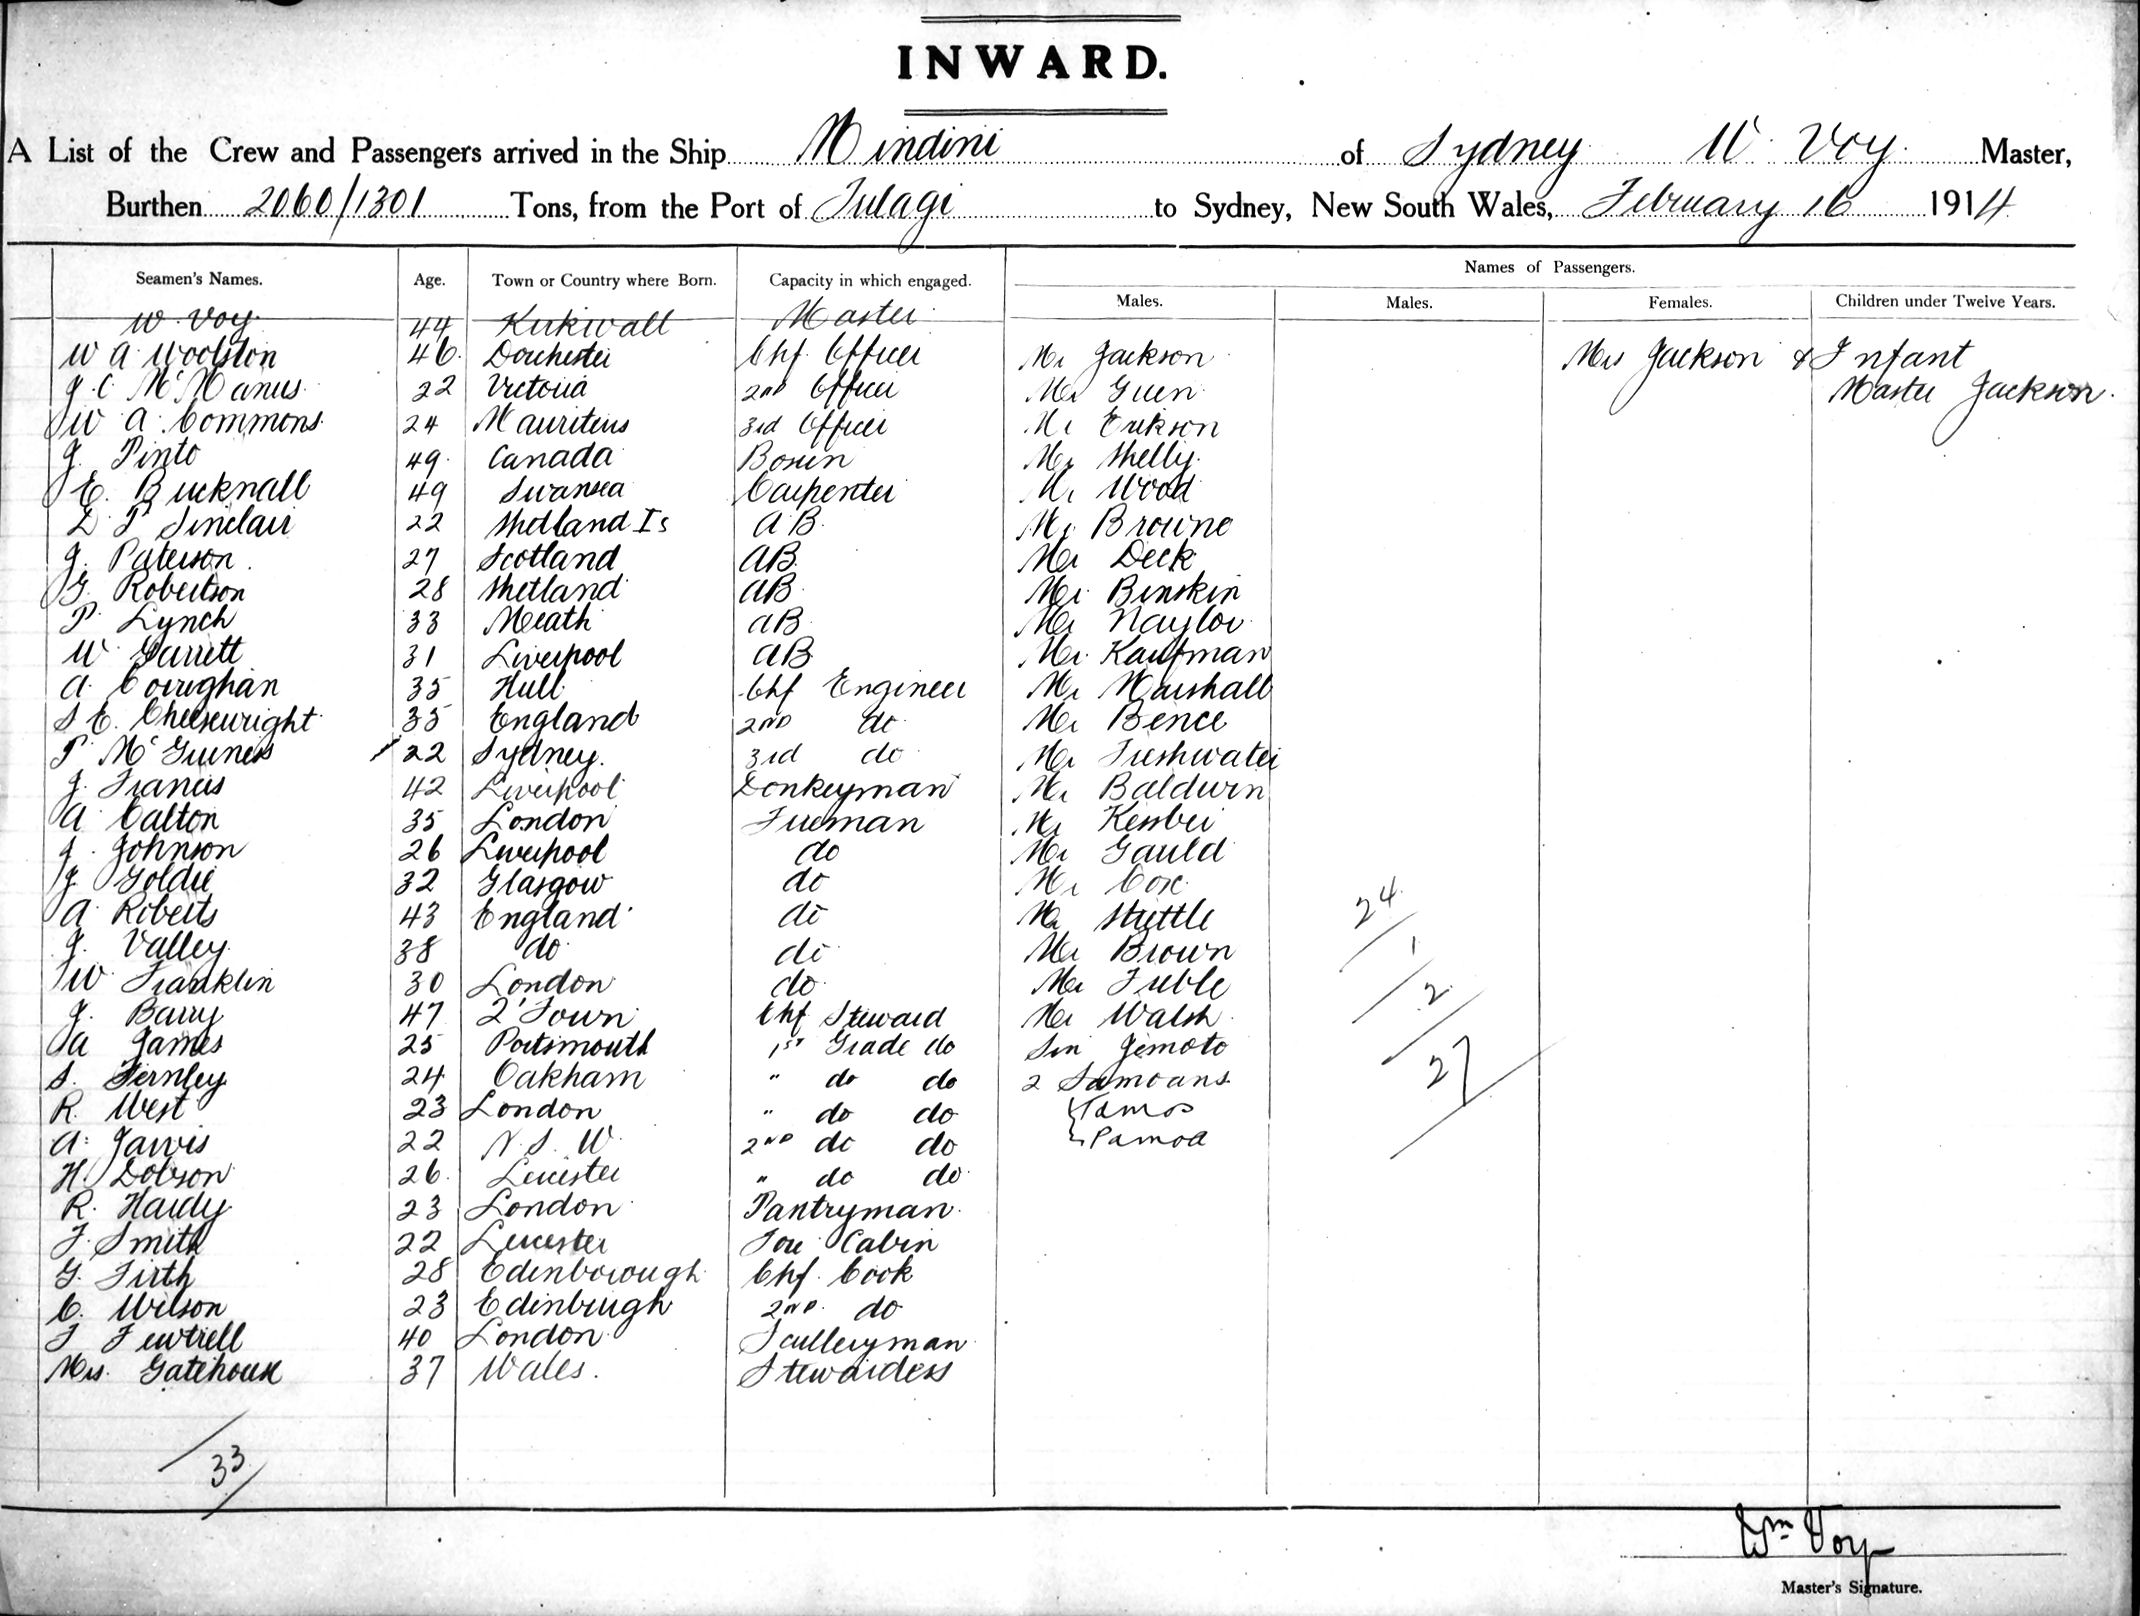 INWARD.
A List of the Crew and Passengers arrived in the Ship Mindini of Sydney W. Voy Master,
Burthen 2060/1301 Tons, from the Port of Tulagi to Sydney, New South Wales, February 16 1914
Names of Passengers.
Seamen's Names. Age. Town or Country where Born. Capacity in which engaged. Males. Males. Females. Children under Twelve Years.
W. Voy 44 Kirkwall Master
W A Woolston 46 Dorchester Chf Officer Mr Jackson Mrs Jackson & Infant
J. C McManus 22 Victoria 2ND Officer Mr Green Master Jackson
W A. Commons 24 Mauritius 3rd Officer Mr Erikson
J. Pinto 49 Canada Bosun Mr Shelly
E. Bucknall 49 Swansea Carpenter Mr Wood
D. P Sinclair 22 Shetland Is AB. Mr Browne
J. Paterson 27 Scotland AB. Mr Deck
G. Robertson 28 Shetland AB Mr Binskin
P. Lynch 33 Meath AB Mr Naylor
W. Garrett 31 Liverpool AB Mr Kaufman
A. Corrighan 35 Hull Chf Engineer Mr Marshall
S E. Cheesewright 35 England 2ND do Mr Bence
P. McGuiness 22 Sydney. 3rd do Mr Freshwater
J. Francis 42 Liverpool Donkeyman Mr Baldwin
A Calton 35 London Fireman Mr
J. Johnson 26 Liverpool do Mr Gauld
J Goldie 32 Glasgow do Mr Cox
A Roberts 43 England do Mr Stuttle
J. Valley 38 do do Mr Brown
W. Franklin 30 London do Mr
J. Barry 47 Q'Town Chf Steward Mr Walsh
A James 25 Portsmouth 1ST Grade do Jimoto
S. Fernley 24 Oakham " do do 2 Samoans
R. West 23 London " do do { Tamos
A. Jarvis 22 N. S. W. 2ND do do Pamoa
H. Dobson 26 Leicester " do do
R. Hardy 23 London Pantryman
F. Smith 22 Leicester Fore Cabin
G. Firth 28 Edinborough Chf. Cook
C. Wilson 23 Edinburgh 2ND do
F Fewtrell 40 London Sculleryman
Mrs. Gatehouse 37 Wales. Stewardess
24
1
2
27
33
Wm Voy
Master's Signature.